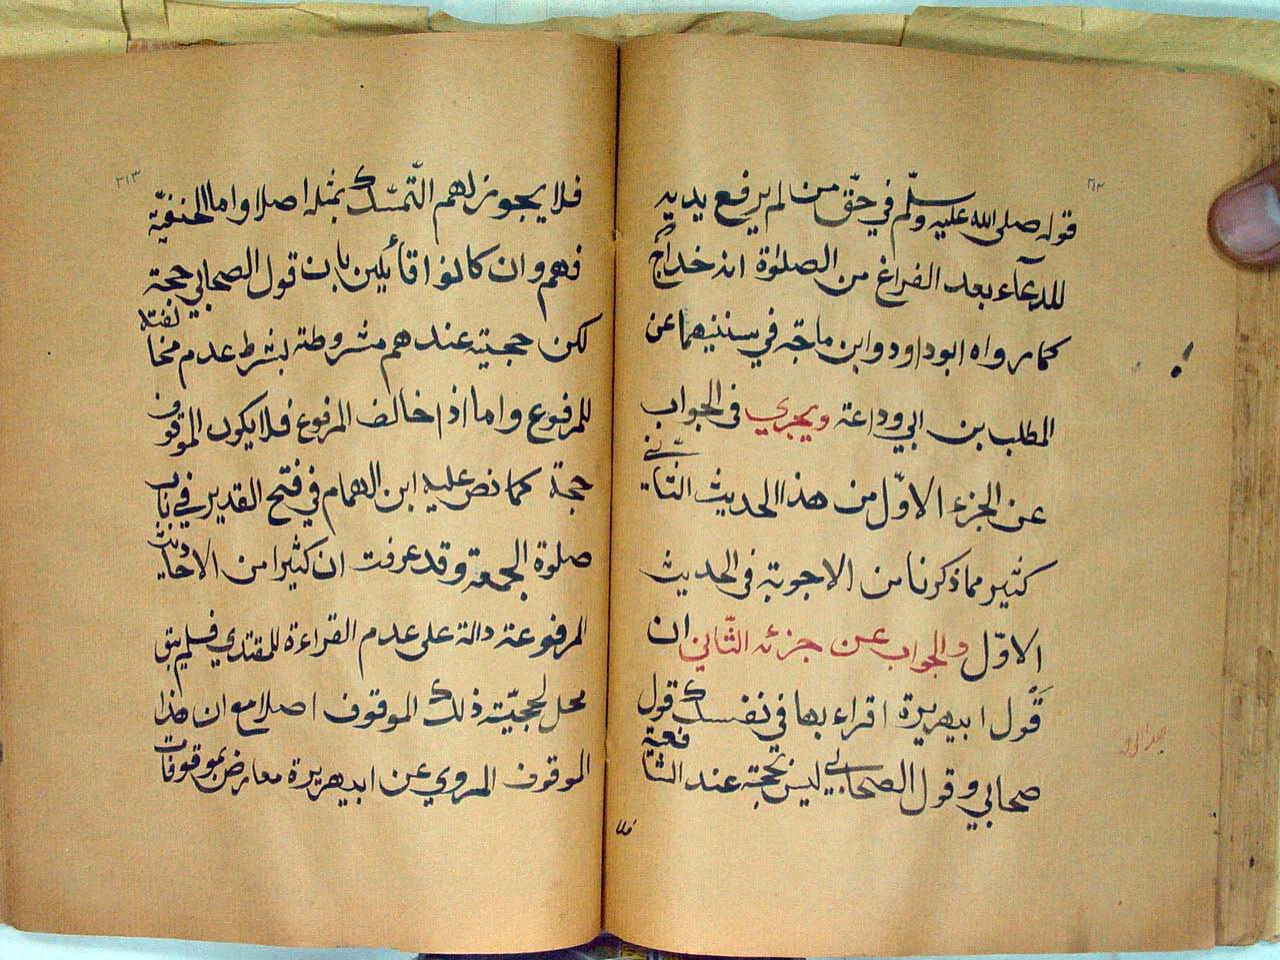 ٢١٢
قوله صلى الله عليه وسلّم في حقّ من لم يرفع يديه
للدعآء بعد الفراغ من الصلوٰة انه خداج
كما رواه ابوداود وابن ماجّه في سننيهما عن
المطلب بن ابي وداعة ويجري في الجواب
عن الجزء الاوّل من هذا الحديث الثّاني
كثير مما ذكرنا من الاجوبة في الحديث
الاوّل والجواب عن جزئه الثّاني ان
قول ابيهريرة اقراء بها في نفسك قول
صحابي وقول الصحابي ليس بحجة عند الشافعية
فلا
٢١٣
فلا يجوز لهم التّمسّك بمثله اصلا واما الحنفيّة
فهم وان كانوا قأئلين بان قول الصحابي حجة
لكن حجيته عندهم مشروطة بشرط عدم مخالفته
للمرفوع واما اذا خالف المرفوع فلا يكون الموقوف
حجة كما نص عليه ابن الهمام في فتح القدير في باب
صلوة الجمعة وقد عرفت ان كثيرا من الاحاديث
المرفوعة دالة على عدم القراءة للمقتدي فلم يبق
محل لحجيّته ذلك الموقوف اصلا مع ان هذا
الموقوف المروي عن ابيهريرة معارض بموقوفات